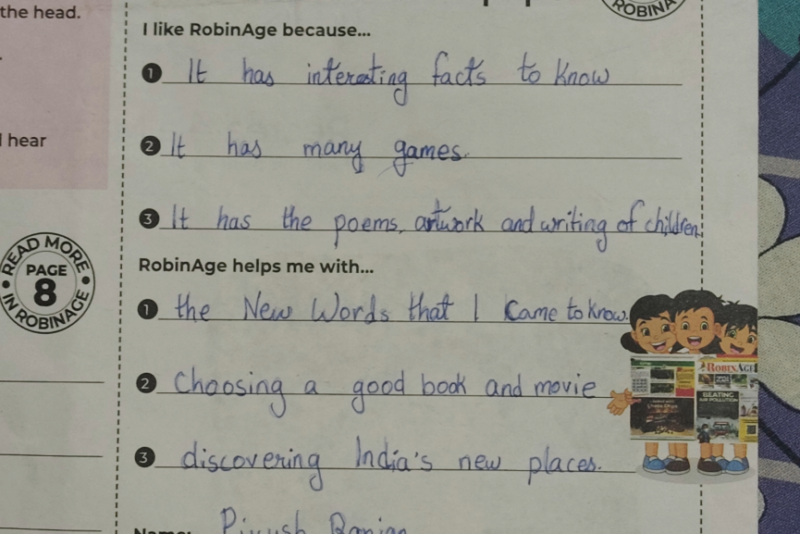 the head.
ROBINA
I like RobinAge because...
1 It has interesting facts to know
hear
2 It has many games.
3 It has the poems, artwork and writing of children.
READ MORE
PAGE
8
IN ROBINAGE
RobinAge helps me with...
1 the New Words that I came to know.
2 Choosing a good book and movie
ROBINAGE
BEATING
AIR POLLUTION
3 discovering India's new places.
Name: Piyush Ranjan